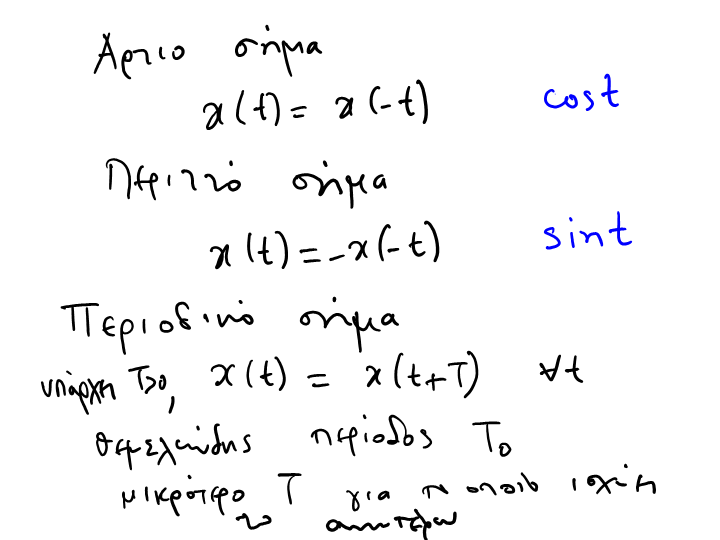 Άρτιο σήμα
x(t) = x(-t) cost
Περιττό σήμα
x(t) = -x(-t) sint
Περιοδικό σήμα
υπάρχει T>0, x(t) = x(t+T) ∀t
θεμελιώδης περίοδος T₀
μικρότερο T για το οποίο ισχύει
το ανωτέρω